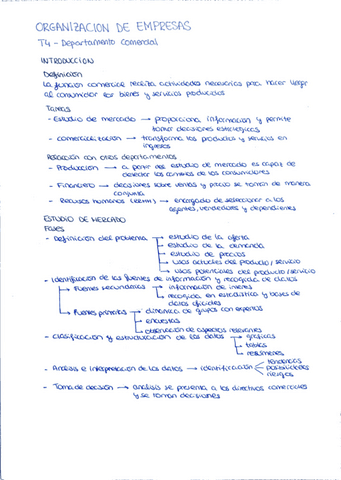 ORGANIZACION DE EMPRESAS
T4 - Departamento Comercial
INTRODUCCION
Definición
La función comercial recoge actividades necesarias para hacer llegar
al consumidor los bienes y servicios producidos
Tareas
- Estudio de mercado → proporciona información y permite
tomar decisiones estratégicas
- comercialización → transforma los productos y servicios en
ingresos
Relación con otros departamentos
- Producción → a partir del estudio de mercado es capaz de
detectar los cambios de los consumidores
- Financiero → decisiones sobre ventas y precio se toman de manera
conjunta
- Recursos humanos (RRHH) → encargado de seleccionar a los
agentes, vendedores y dependientes
ESTUDIO DE MERCADO
Fases
- Definición del problema → estudio de la oferta
→ estudio de la demanda
→ estudio de precios
→ usos actuales del producto/servicio
→ usos potenciales del producto/servicio
- Identificación de las fuentes de información y recogida de datos
→ Fuentes secundarias → información de interés
→ recogida en estadística y bases de
datos oficiales
→ Fuentes primarias → dinámica de grupos con expertos
→ encuestas
→ observación de aspectos relevantes
- Clasificación y estructuración de los datos → gráficas
→ tablas
→ resúmenes
- Análisis e interpretación de los datos → identificación → tendencias
→ posibilidades
→ riesgos
- Toma de decisión → análisis se presenta a los directivos comerciales
y se toman decisiones